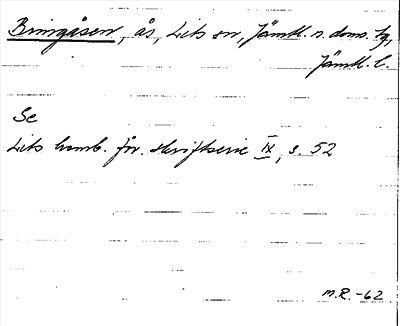 Bringåsen, ås, Lits sn, Jämtl. n. doms. tg,
Jämtl. l.
Se
Lits hemb. för. skriftserie IX, s. 52
M.R. -62